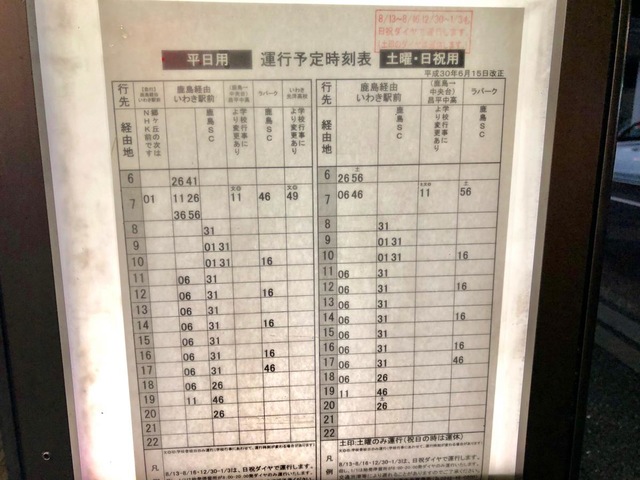 8/13~8/16・12/30~1/3は
日祝ダイヤで運行します。
平日用 運行予定時刻表 土曜・日祝用
平成30年6月15日改正
行先 鹿島経由 いわき駅前 (鹿島→中央台) 昌平中高 ラパーク いわき光洋高校 行先 鹿島経由 いわき駅前 (鹿島→中央台) 昌平中高 ラパーク
経由地 郷ケ丘の次はNHK前です 鹿島SC 学校行事により変更あり 鹿島SC 学校行事により変更あり 経由地 鹿島SC 学校行事により変更あり 鹿島SC
6 26 41 6 26 土56
7 01 11 26 11 46 49 7 06 46 11 土56
36 56
8 31 8 31
9 01 31 9 01 31
10 01 31 16 10 01 31 16
11 06 31 11 06 31
12 06 31 16 12 06 31 16
13 06 31 13 06 31
14 06 31 16 14 06 31 16
15 06 31 15 06 31
16 06 31 16 16 06 31 16
17 06 31 46 17 06 31 46
18 06 26 18 06 26
19 11 46 19 11 46
20 26 20 土26
21 21
22 22
土印:土曜のみ運行(祝日の時は運休)
凡 8/13-8/16・12/30-1/3は、日祝ダイヤで運行します。
凡例 8/13-8/16・12/30-1/3は、日祝ダイヤで運行します。